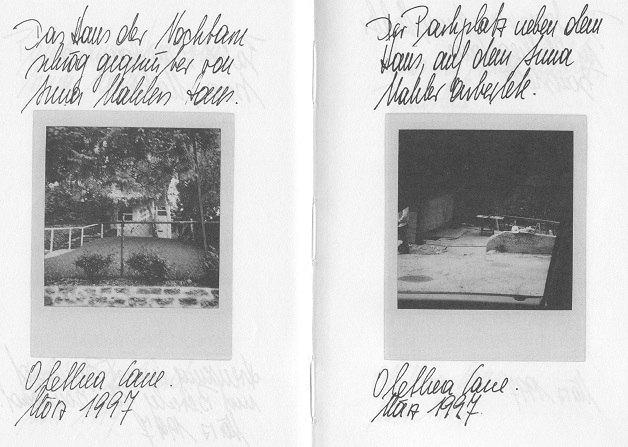 Das Haus der Nachbarn
schräg gegenüber von
Anna Mahlers Haus.
Olethea Lane.
März 1997
Der Parkplatz neben dem
Haus, auf dem Anna
Mahler arbeitete.
Olethea Lane.
März 1997.